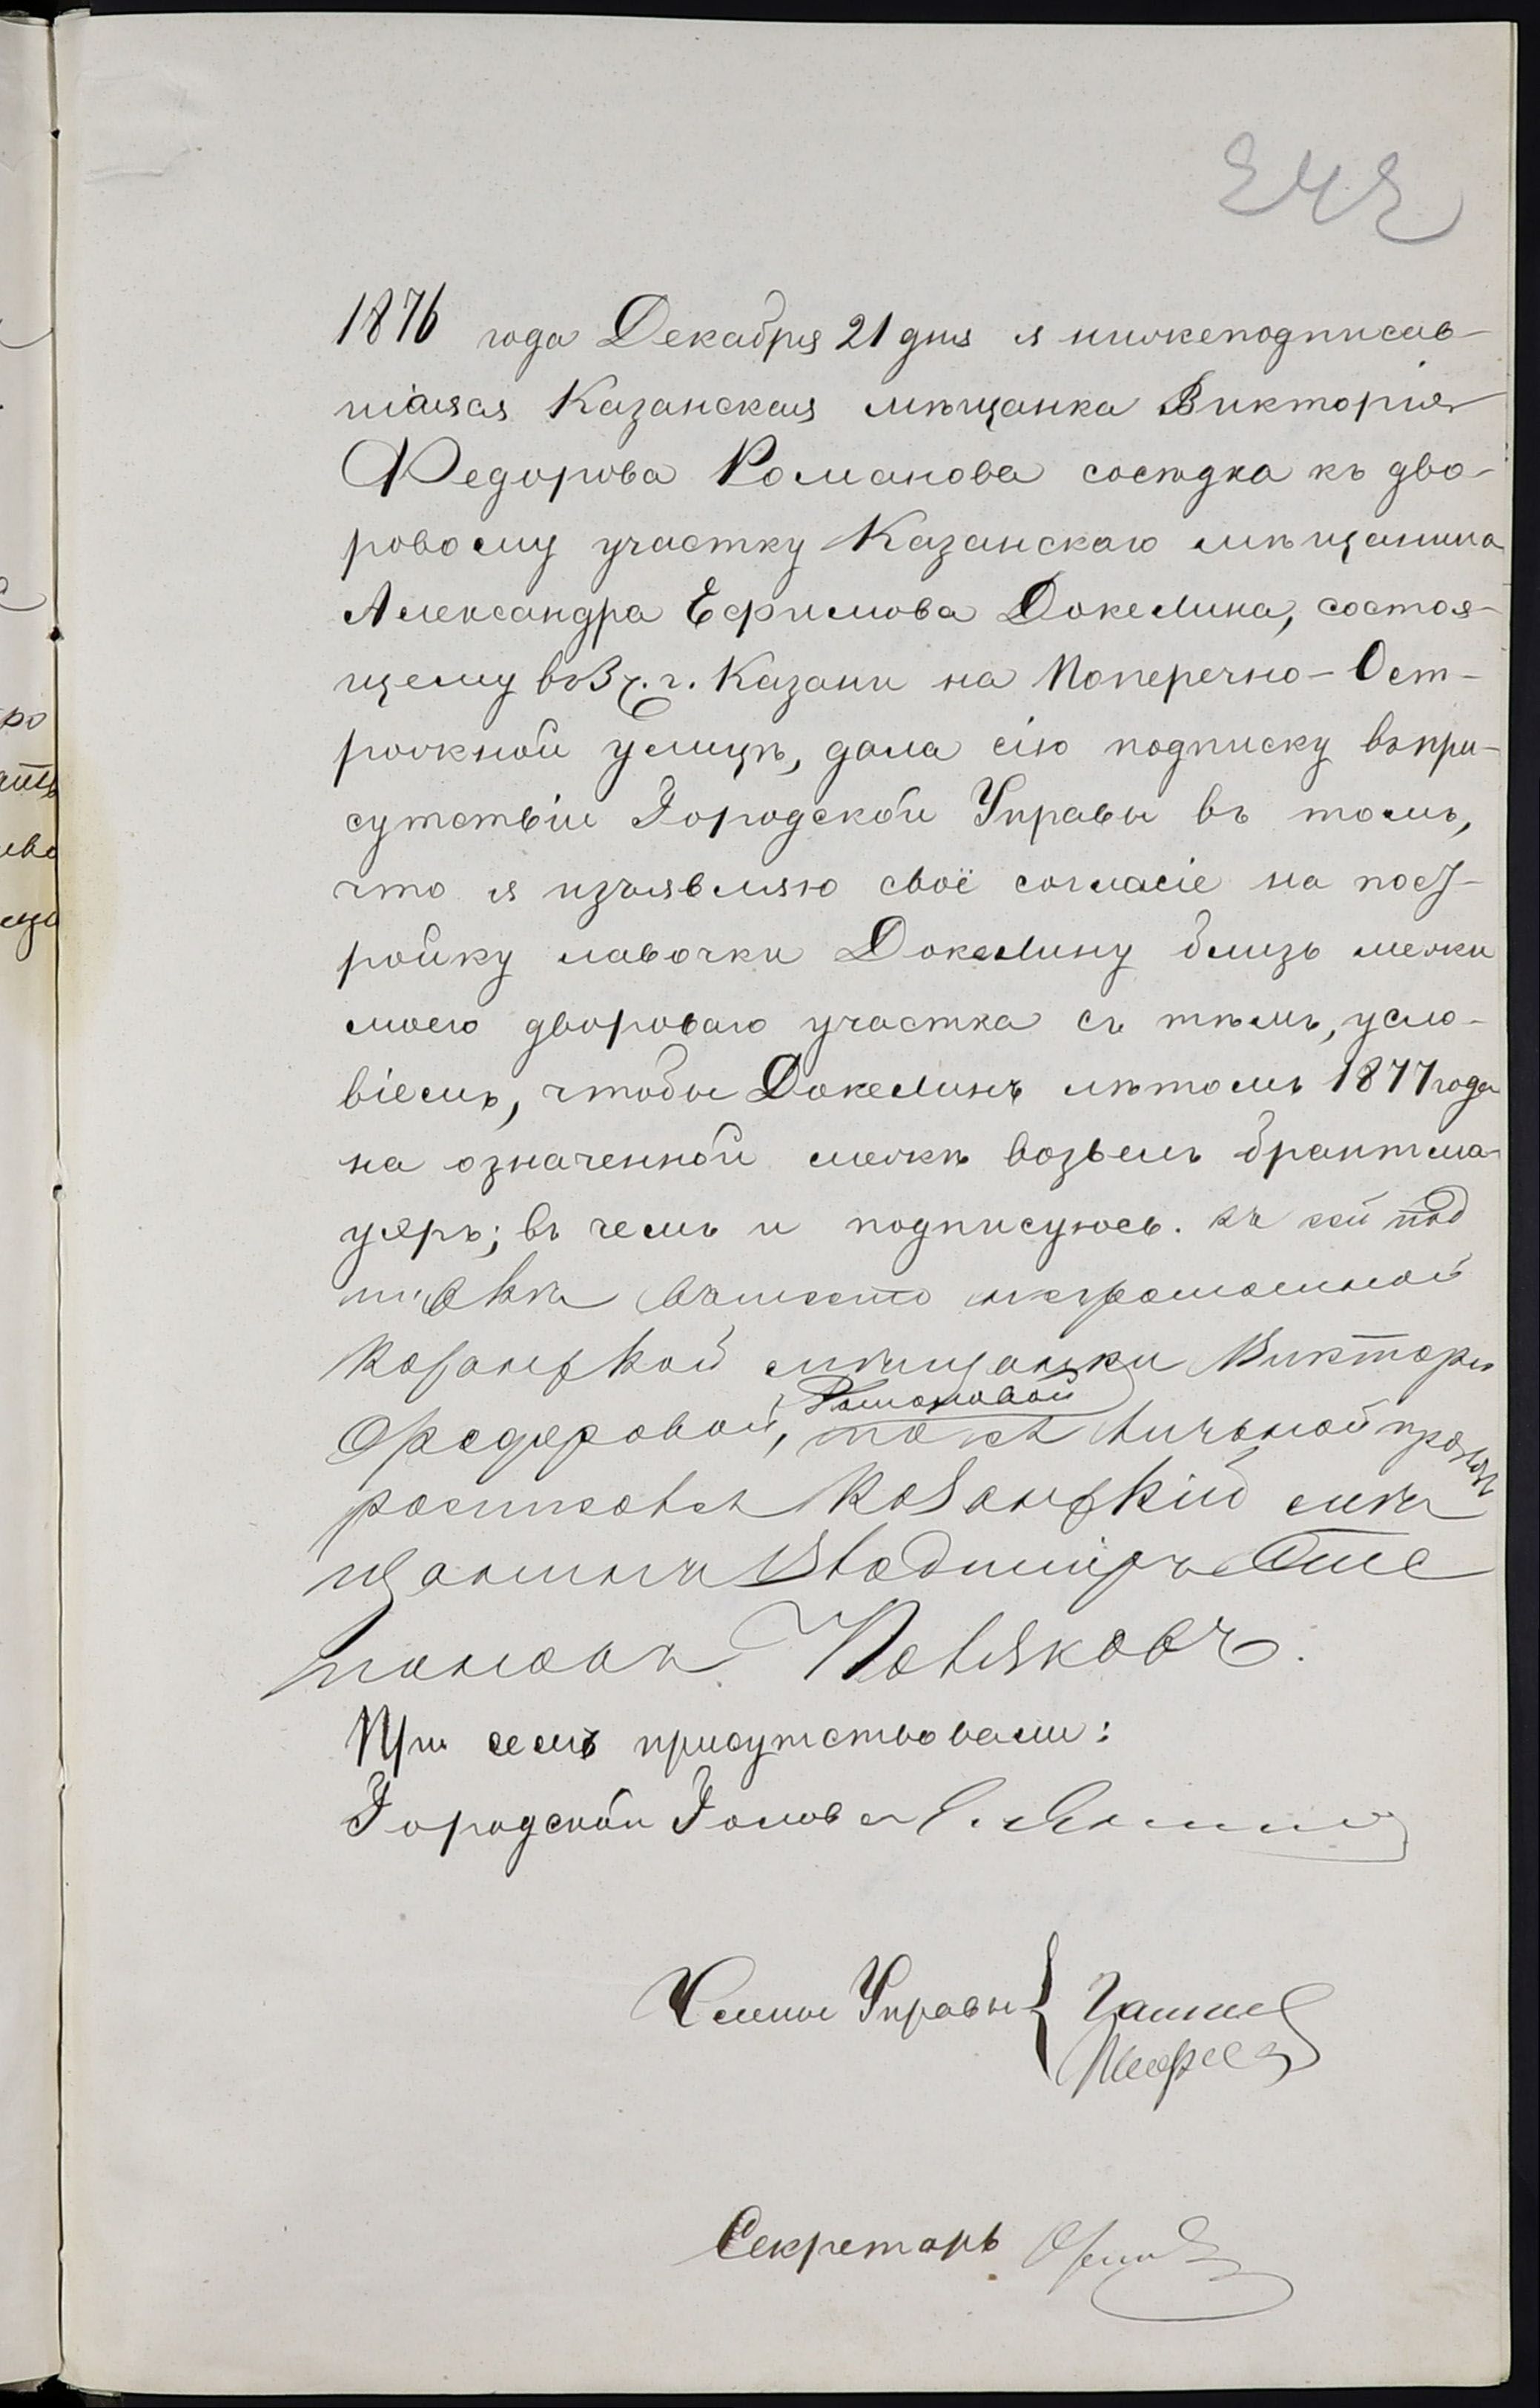 242
1876 года Декабря 21 дня я нижеподписав-
шаяся Казанская мѣщанка Викторія
Федорова Романова сосѣдка къ дво-
ровому участку Казанскаго мѣщанина
Александра Ефимова Докелина, состоя-
щему въ 3 ч. г. Казани на Поперечно-Ост-
рожной улицѣ, дала сію подписку въ при-
сутствіи Городской Управы въ томъ,
что я изъявляю своё согласіе на пост-
ройку лавочки Докелину близь межи
моего двороваго участка съ тѣмъ, усло-
віемъ, чтобы Докелинъ лѣтомъ 1877 года
на означенной межѣ возвелъ брантма-
уеръ; въ чемъ и подписуюсь. Къ сей под
пискѣ вместо неграмотной
Казанской мѣщанки Виктори
Романовой
Федоровой, по ея личьной прозьбѣ
росписался Казанскій мѣ
щанинъ Владимиръ Сте
пановъ Поляковъ.
При семъ присутствовали:
Городской Голова
Члены Управы
Секретарь